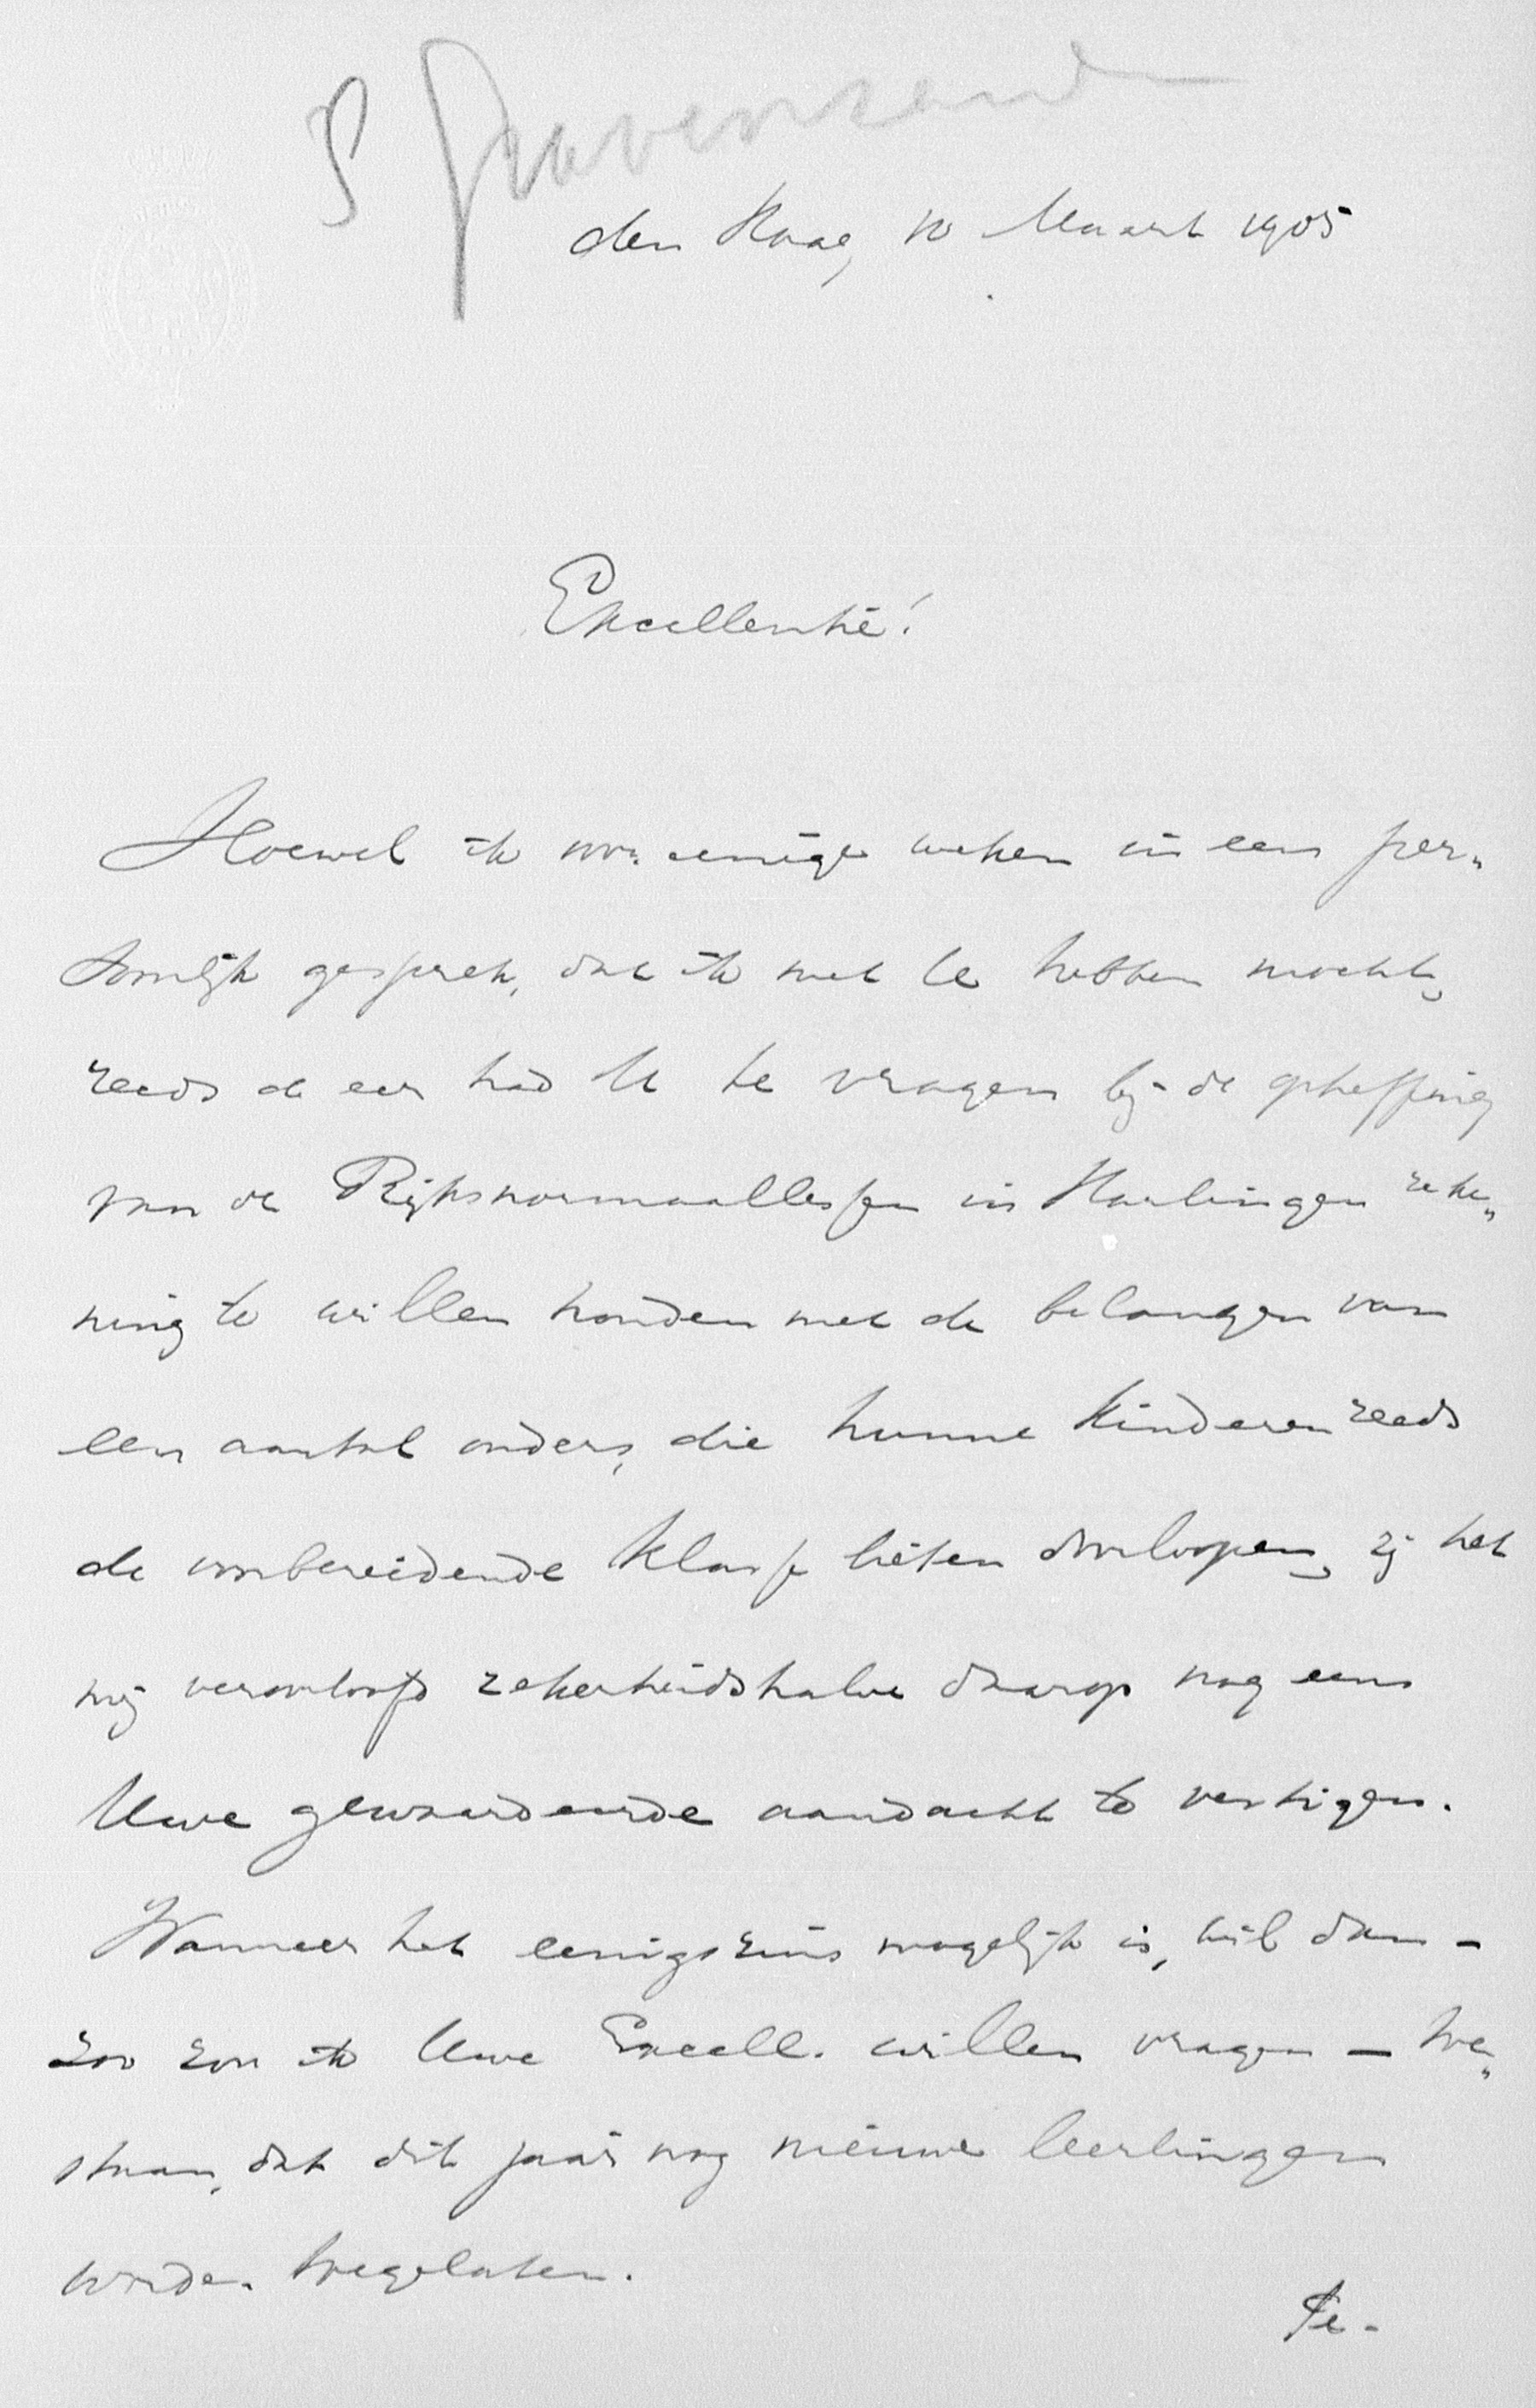 S Gravensand
den Haag, 10 Maart 1905
Excellentie!
Hoewel ik voor eenige weken in een per„
soonlijk gesprek, dat ik met U hebben mocht,
reeds de eer had U te vragen bij de opheffing
van de Rijksnormaallessen in Harlingen reke„
ning te willen houden met de belangen van
een aantal ouders, die hunne kinderen reeds
de voorbereidende klasse lieten doorloopen, zij het
mij veroorloofd zekerheidshalve daarop nog eens
Uwe gewaardeerde aandacht te vestigen.
Wanneer het eenigszins mogelijk is, wil dan -
zoo zou ik Uwe Excell. willen vragen - toe„
staan, dat dit jaar nog nieuwe leerlingen
worden toegelaten.